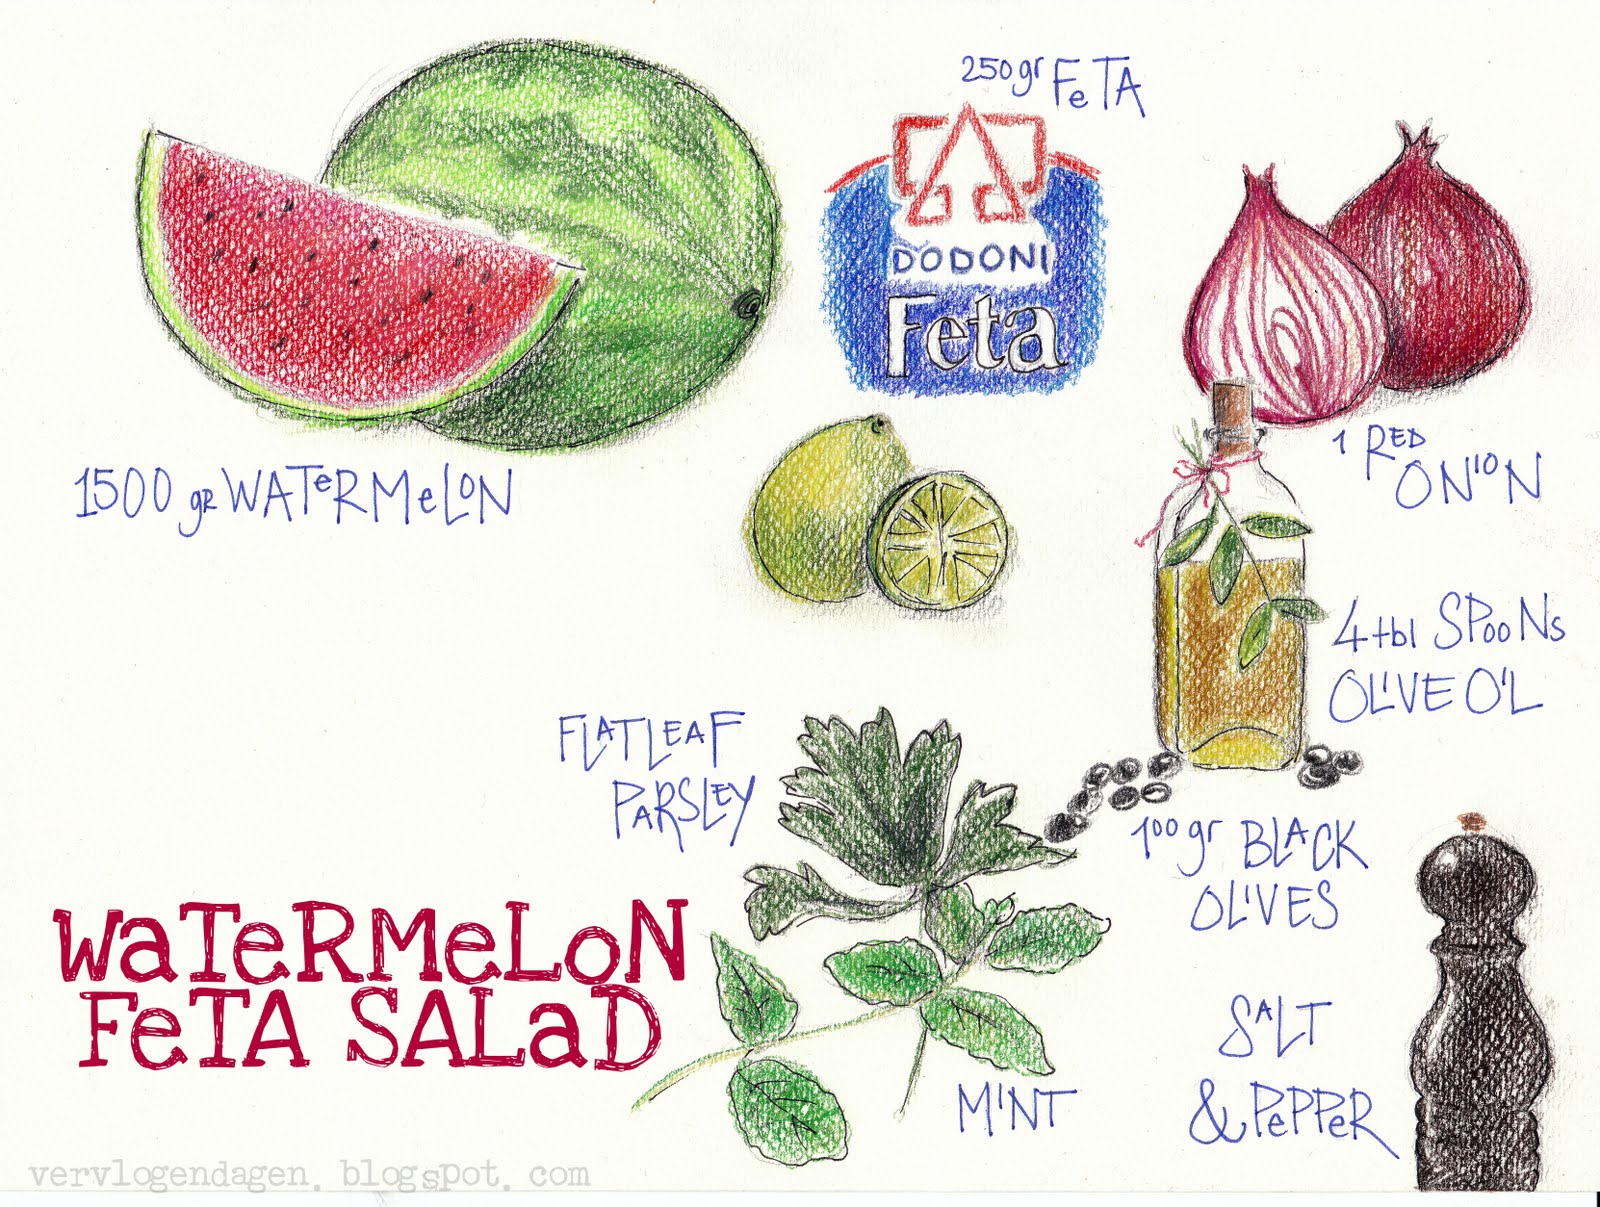 250gr FeTA
DODONI
Feta
1500 gr WATeRMeLoN
1 RED
ONION
4 tbl SPooNs
OLIVE OIL
FLATLEAF
PARSLEY
100 gr BLACK
OLIVES
WaTeRMeLoN
FeTA SALaD
SALT
& PePPeR
MINT
vervlogendagen. blogspot. com